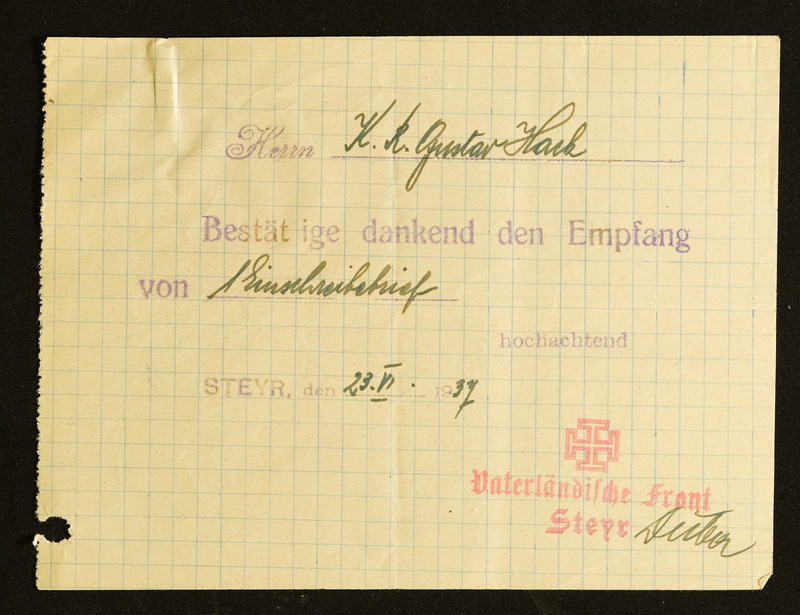 Herrn K. R. Gustav Hack
Bestätige dankend den Empfang
von 1 Einschreibebrief
hochachtend
STEYR, den 23. VI. 1937
Vaterländische Front
Steyr